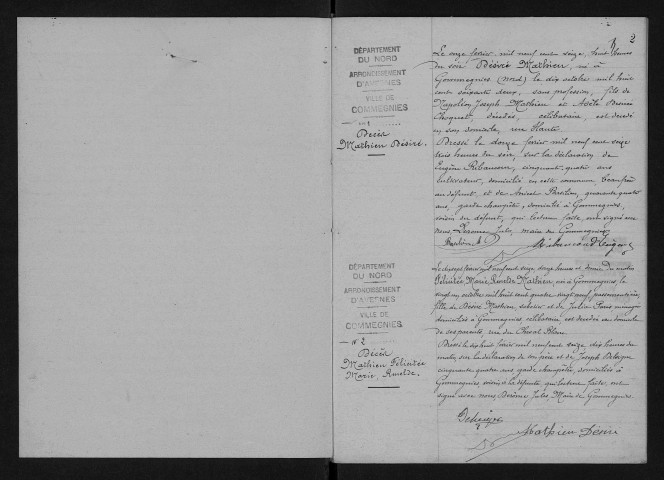 2
DÉPARTEMENT
DU NORD
ARRONDISSEMENT
D'AVESNES
VILLE DE
GOMMEGNIES
Décès
Mathieu Désiré.
Le onze février mil neuf cent seize, huit heures
du soir Désiré Mathieu, né à
Gommegnies (Nord) le dix octobre mil huit
cent soixante deux, sans profession, fils de
Napoléon Joseph Mathieu et Adèle
décédés, célibataire, est décédé
en son domicile, rue Haute.
Dressé le douze février mil neuf cent seize
trois heures du soir, sur la déclaration de
Eugène Ribaucour, cinquante quatre ans
cultivateur, domicilié en cette commune beau frère
du défunt, et de quarante quatre
ans, garde champêtre, domicilié à Gommegnies,
voisin du défunt, qui lecture faite, ont signé avec
nous, Jules, maire de Gommegnies
DÉPARTEMENT
DU NORD
ARRONDISSEMENT
D'AVESNES
VILLE DE
GOMMEGNIES
N° 2
Décès
Mathieu Félicitée
Marie,
Le dix sept février mil neuf cent seize, onze heures et demie du matin
Félicitée Marie Mathieu, née à Gommegnies, le
vingt un octobre mil huit cent quatre vingt neuf,
fille de Désiré Mathieu, et de Julie
domiciliés à Gommegnies, célibataire, est décédée au domicile
de ses parents, rue du Cheval Blanc.
Dressé le dix huit février mil neuf cent seize, dix heures du
matin, sur la déclaration de son père et de Joseph
cinquante quatre ans garde champêtre, domiciliés à
Gommegnies, voisin de la défunte qui lecture faite, ont
signé avec nous, Jules, Maire de Gommegnies.
Mathieu Désiré